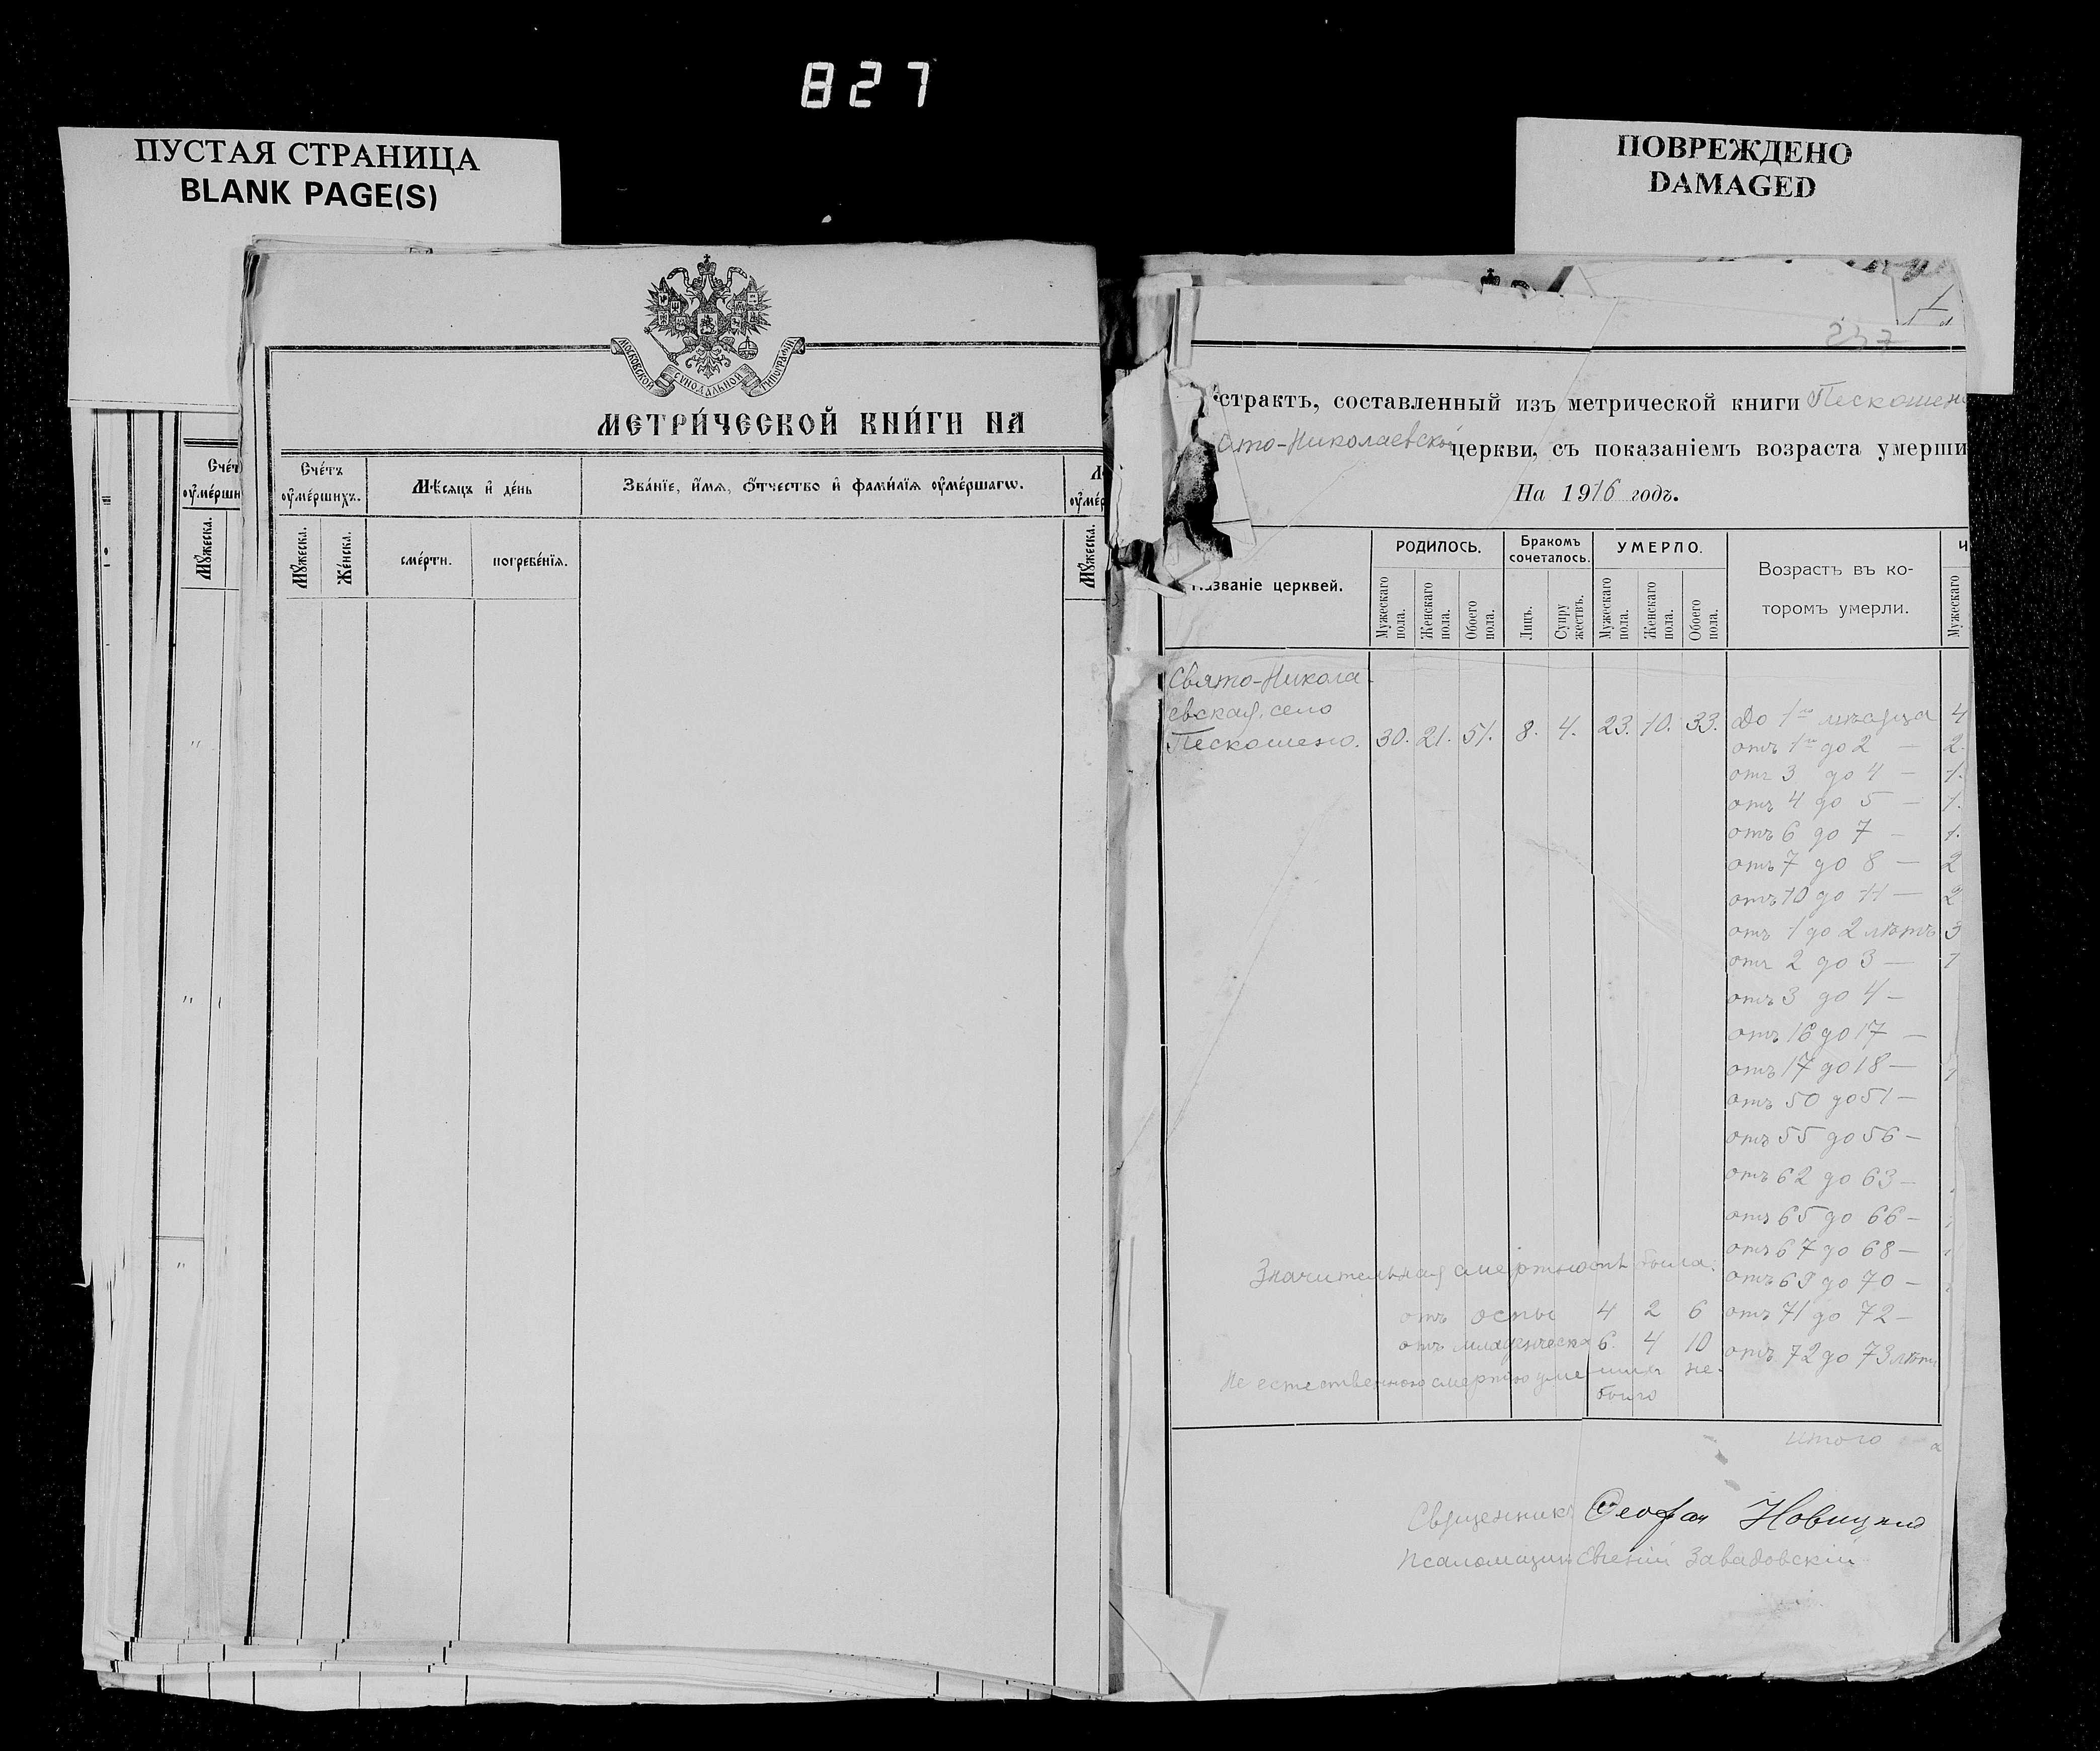 827
ПУСТАЯ СТРАНИЦА
BLANK PAGE(S)
ПОВРЕЖДЕНО
DAMAGED
МОСКОВСКОЙ СѴНОДАЛЬНОЙ ТИПОГРАФІИ
МЕТРИ́ЧЕСКОЙ КНИ́ГИ НА
Сче́тъ оу҆ме́ршихъ.
Мѣ́сяцъ и҆ де́нь
Зва́нїе, и҆́мя, ѻ҆́тчество и҆ фами́лїя оу҆ме́ршагѡ.
Мꙋ́жеска.
Же́нска.
сме́рти.
погребе́нїя.
Мꙋ́жеска.
237
страктъ, составленный изъ метрической книги Пескошен
ято-Николаевской церкви, съ показаніемъ возраста умерши
На 1916 годъ.
Названіе церквей.
РОДИЛОСЬ.
Бракомъ сочеталось.
УМЕРЛО.
Возрастъ въ ко-
торомъ умерли.
Мужескаго пола.
Женскаго пола.
Обоего пола.
Лицъ.
Супружествъ.
Мужескаго пола.
Женскаго пола.
Обоего пола.
Мужескаго
Свято-Никола-
евская, село
Пескошено. 30. 21. 51. 8. 4. 23. 10. 33. До 1го мѣсяца 4
отъ 1го до 2 — 2.
отъ 3 до 4 — 1.
отъ 4 до 5 — 1.
отъ 6 до 7 — 1.
отъ 7 до 8 — 2
отъ 10 до 11 — 2
отъ 1 до 2 лѣтъ 3
отъ 2 до 3 — 1
отъ 3 до 4 —
отъ 16 до 17 —
отъ 17 до 18 — 1
отъ 50 до 51 —
отъ 55 до 56 —
отъ 62 до 63 —
отъ 65 до 66 —
отъ 67 до 68 —
Значительная смертность была:
отъ 69 до 70 —
отъ оспы 4 2 6 отъ 71 до 72 —
отъ младенческ 6. 4 10 отъ 72 до 73 лѣтъ
Не естественною смертію умерших не
было
Итого
Священникъ Феофан Новицкий
Псаломщикъ Евгеній Завадовскій